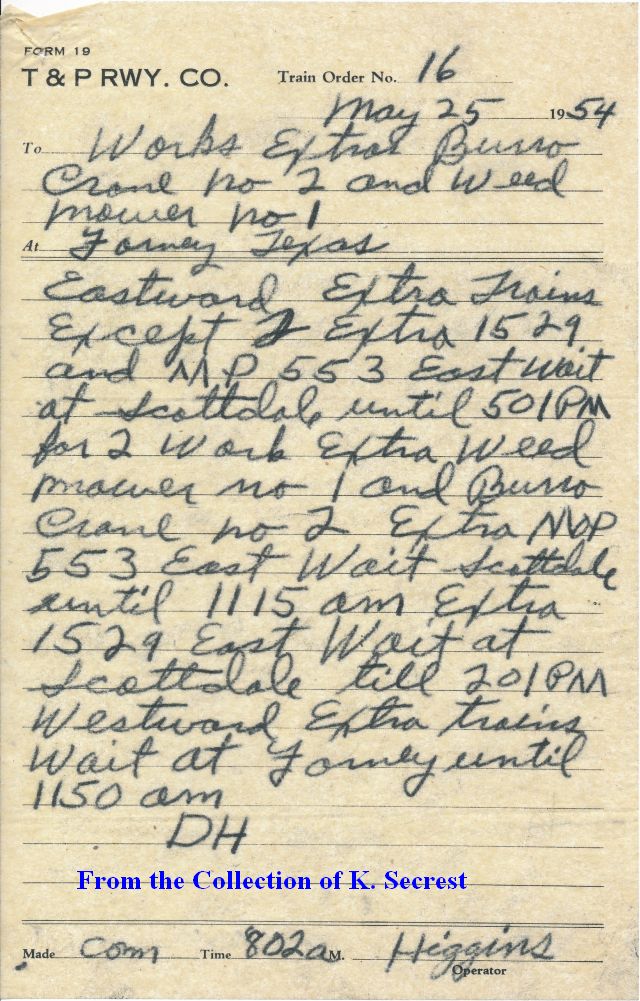 FORM 19
T & P RWY. CO. Train Order No. 16
May 25 1954
To Works Extras Burro
Crane no 2 and Weed
mower no 1
At Forney Texas
Eastward Extra Trains
Except 2 Extra 1529
and MP 553 East Wait
at Scottdale until 501 PM
for 2 Work Extra Weed
mower no 1 and Burro
Crane no 2 Extra MOP
553 East Wait Scottdale
until 1115 am Extra
1529 East Wait at
Scottdale till 201 PM
Westward Extra trains
Wait at Forney until
1150 am
DH
From the Collection of K. Secrest
Made Com Time 802a M. Higgins
Operator